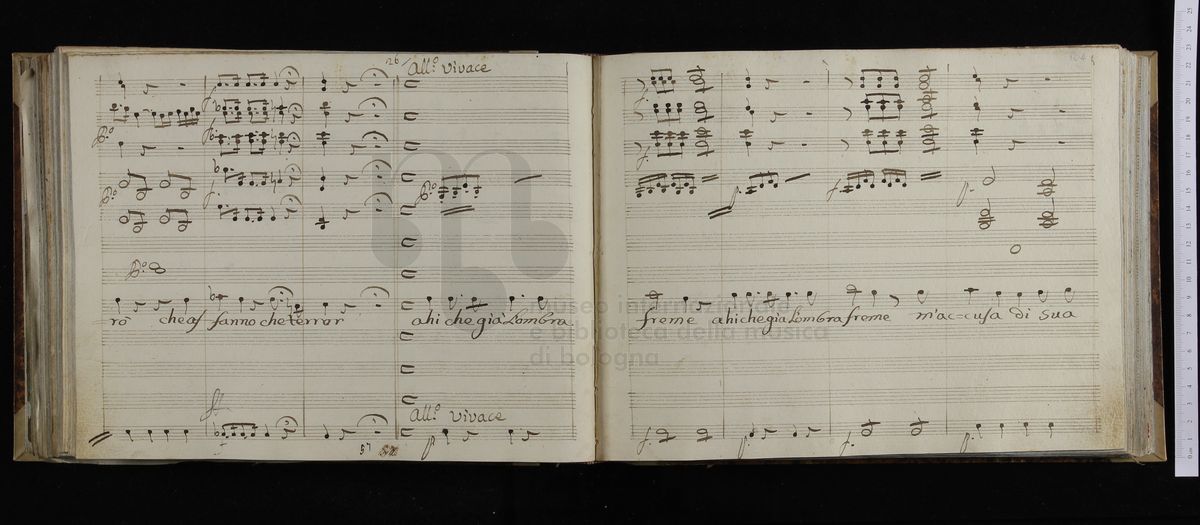 26
All.º vivace
rò che af fanno che terror
ahi che già L'ombra
All.º vivace
57
freme ahi che già L'ombra freme m'ac=cusa di sua
museo internazionale
e biblioteca della musica
di bologna